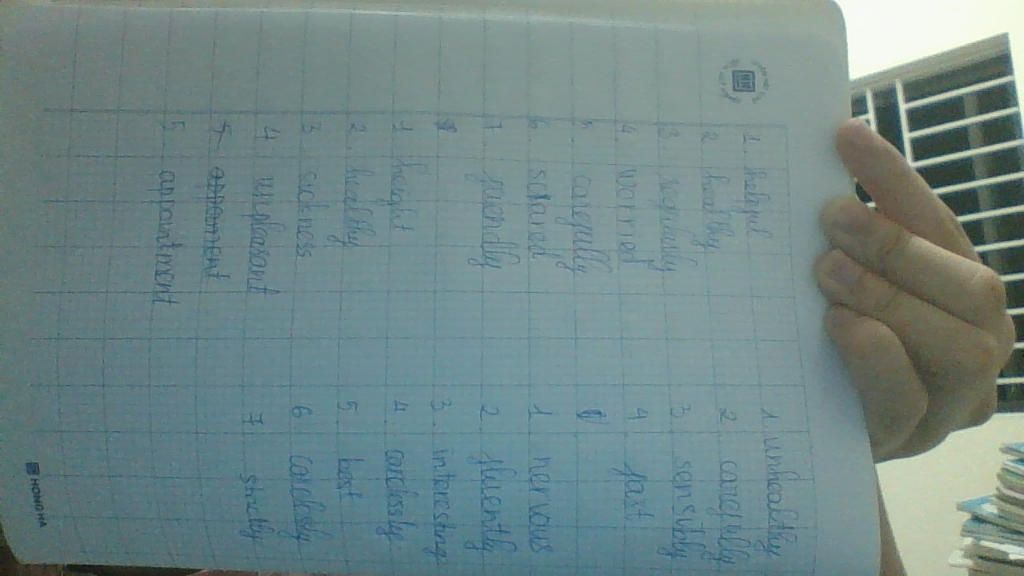 1. helpful
2. healthy
3. regularly
4. worried
5. carefully
6. scared
7. friendly
1. height
2. healthy
3 sickness
4 unpleasant
5
5. appointment
1 unhealthy
2 carefully
3 sensibly
4 fast
1 nervous
2. fluently
3. interesting
4. carelessly
5 best
6 carelessly
7 strictly
HONG HA